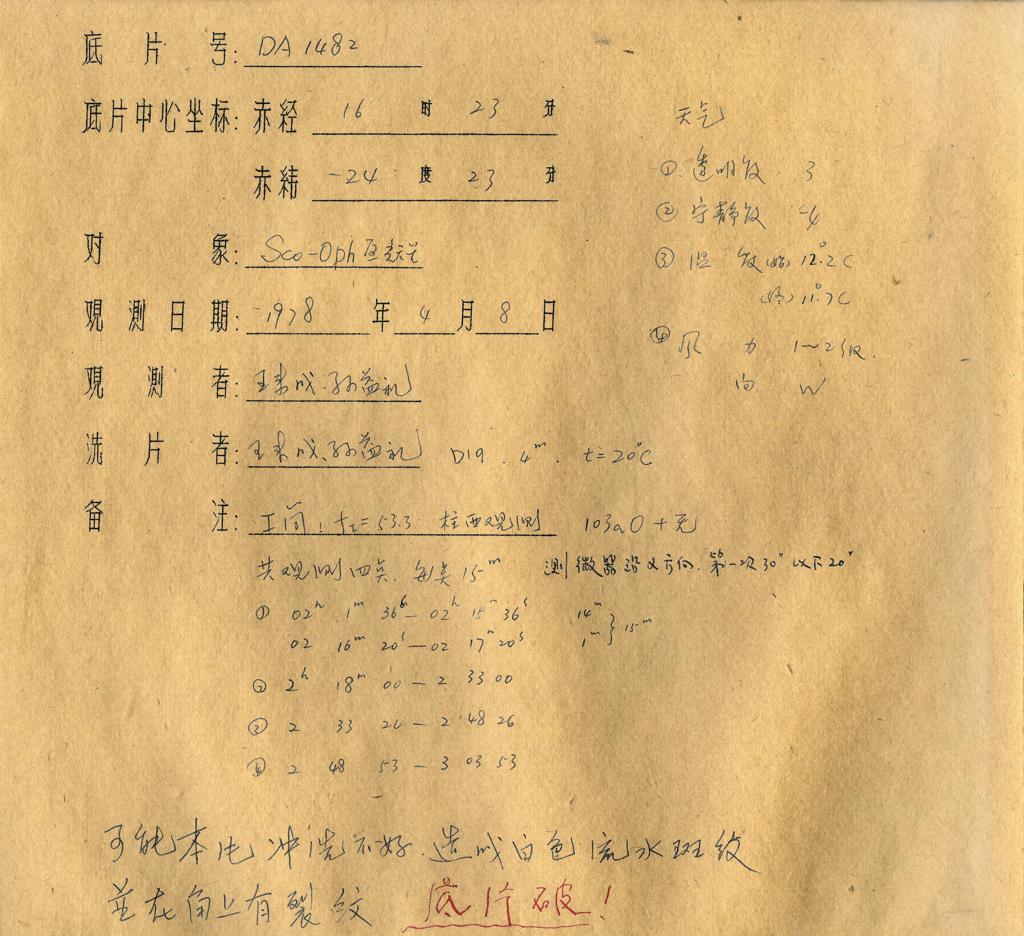 底片号: DA 1482
底片中心坐标: 赤经 16 时 23 分
赤纬 -24 度 23 分
对象: Sco-Oph
观测日期: 1978 年 4 月 8 日
观测者: 王 成、孙益礼
洗片者: 王 成、孙益礼 D19. 4m. t=20°C
备注: 主间: fz=53.3 柱西观测 103aO+无
共观测四点. 每点15m 测微器沿 方向. 第一次30" 以下20"
① 02h 1m 36s — 02h 15m 36s 14m
02 16m 20s — 02 17m 20s 1m } 15m
② 2h 18m 00 — 2 33 00
③ 2 33 26 — 2 48 26
④ 2 48 53 — 3 03 53
天气
①. 透明度 3
② 宁静度 4
③ 温度(始) 12.°2C
(终) 11.°7C
④ 风力 1~2级.
向 W
可能本 冲洗不好. 造成白色流水斑纹
并在角上有裂纹 底片破!